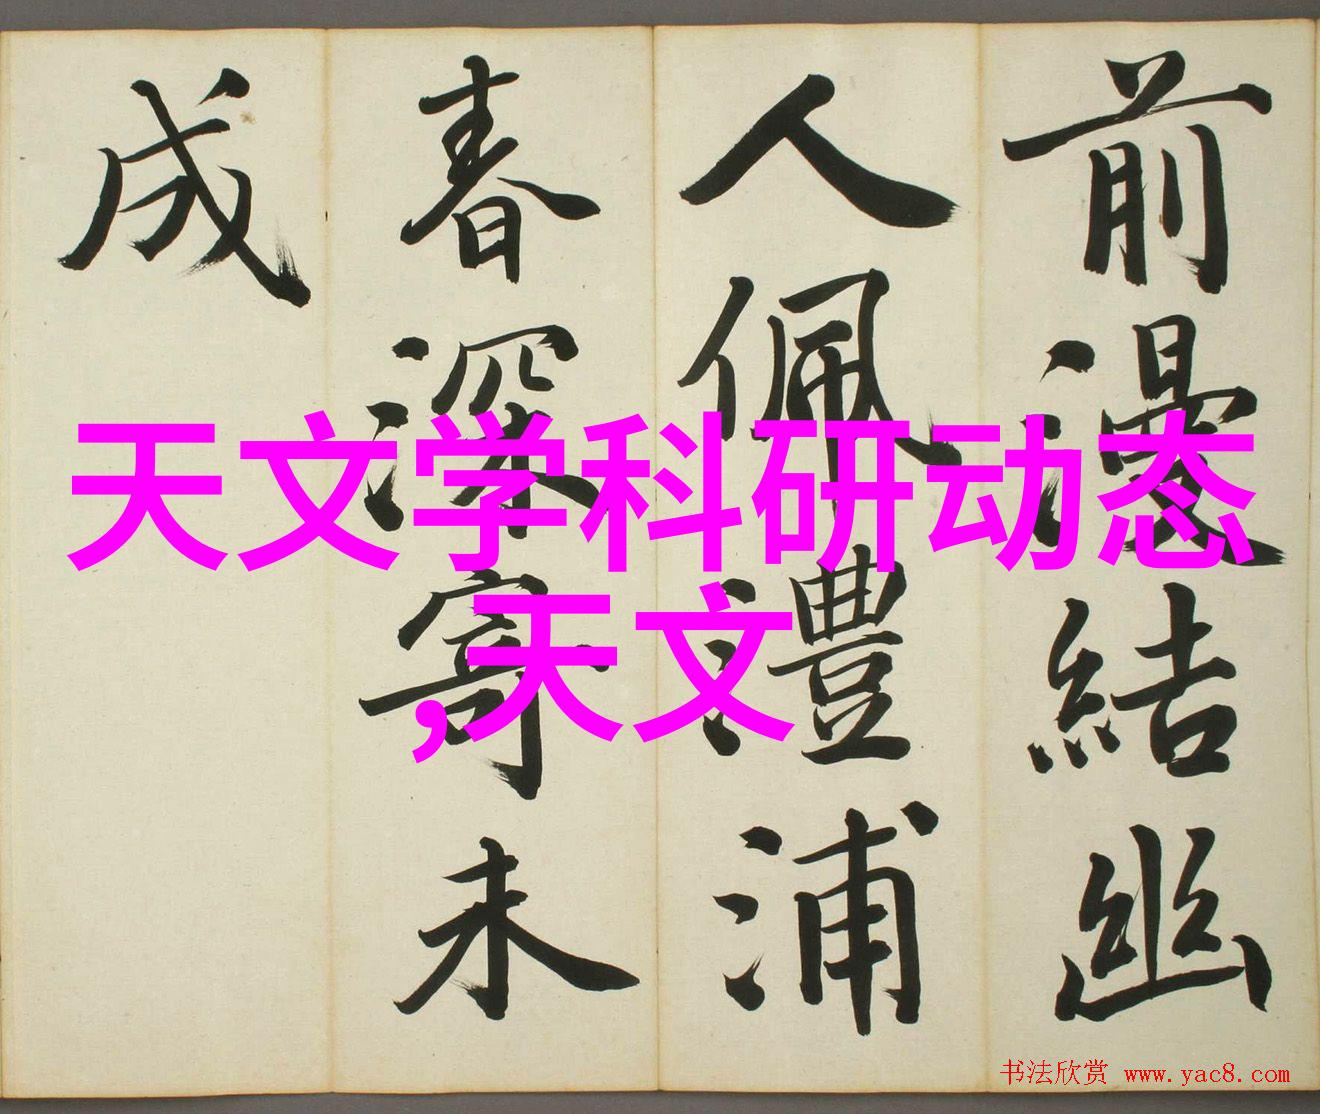 前漫結幽
人佩澧浦
春深寄未
成
天文学科研动态
,天文
书法欣赏 www.yac8.com